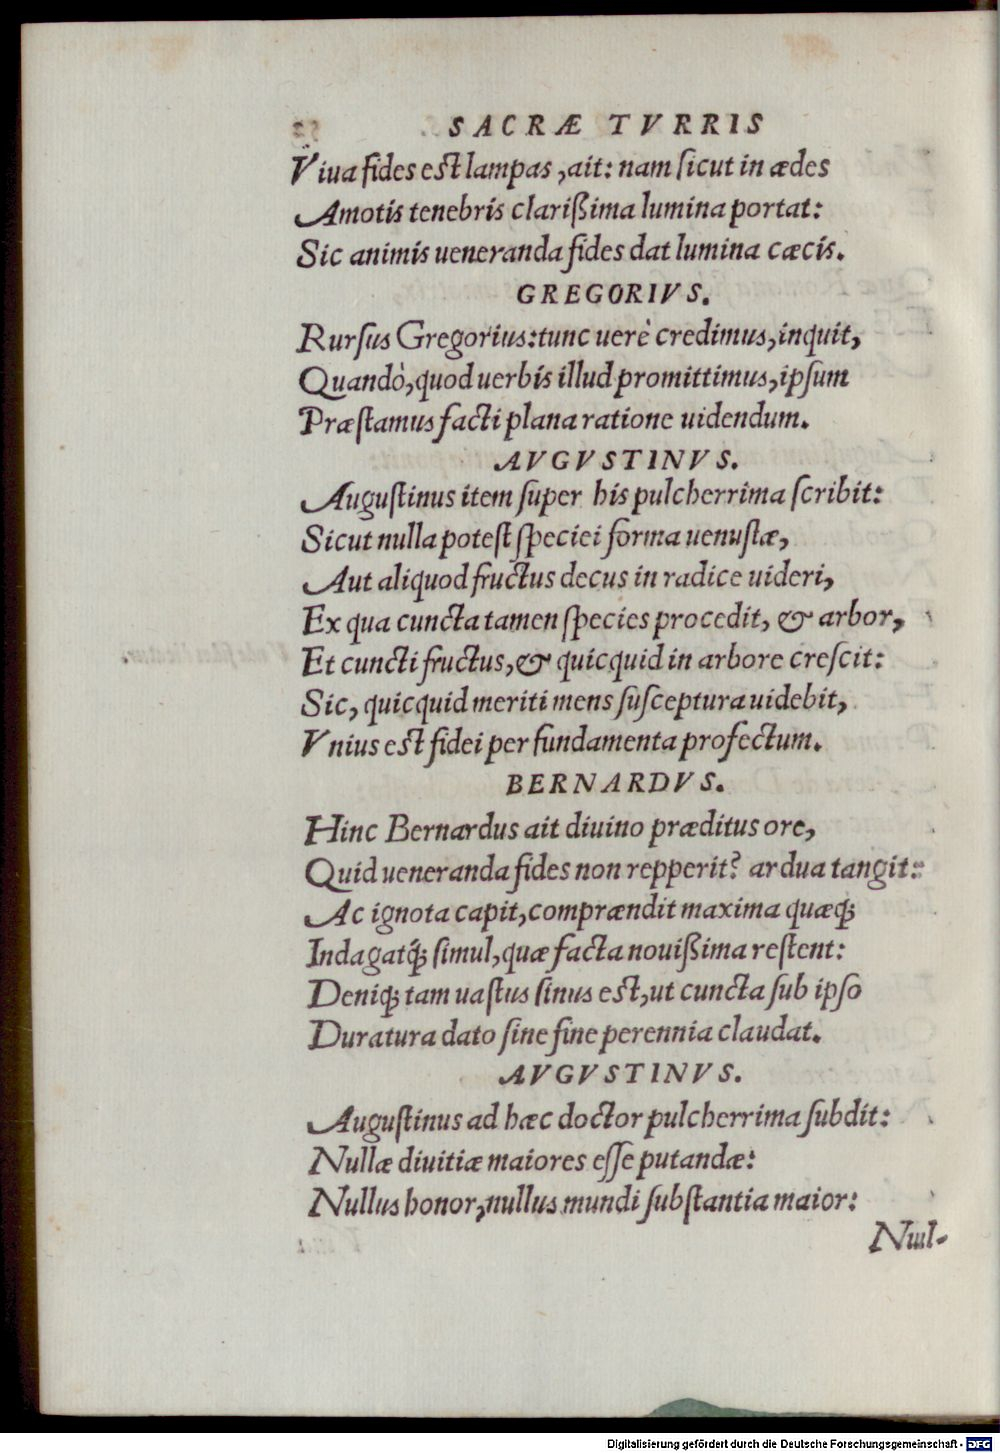 SACRÆ TVRRIS
Viua fides est lampas, ait: nam ſicut in ædes
Amotis tenebris clarißima lumina portat:
Sic animis ueneranda fides dat lumina cæcis.
GREGORIVS.
Rurſus Gregorius: tunc uerè credimus, inquit,
Quandò, quod uerbis illud promittimus, ipſum
Præſtamus facti plana ratione uidendum.
AVGVSTINVS.
Auguſtinus item ſuper his pulcherrima ſcribit:
Sicut nulla poteſt ſpeciei forma uenuſtæ,
Aut aliquod fructus decus in radice uideri,
Ex qua cuncta tamen ſpecies procedit, & arbor,
Et cuncti fructus, & quicquid in arbore creſcit:
Sic, quicquid meriti mens ſuſceptura uidebit,
Vnius est fidei per fundamenta profectum.
BERNARDVS.
Hinc Bernardus ait diuino præditus ore,
Quid ueneranda fides non repperit? ardua tangit:
Ac ignota capit, comprændit maxima quæq;
Indagatq́; ſimul, quæ facta nouißima reſtent:
Deniq; tam uaſtus ſinus est, ut cuncta ſub ipſo
Duratura dato ſine fine perennia claudat.
AVGVSTINVS.
Auguſtinus ad hæc doctor pulcherrima ſubdit:
Nullæ diuitiæ maiores eſſe putandæ:
Nullus honor, nullus mundi ſubſtantia maior:
Nul-
Digitalisierung gefördert durch die Deutsche Forschungsgemeinschaft - DFG